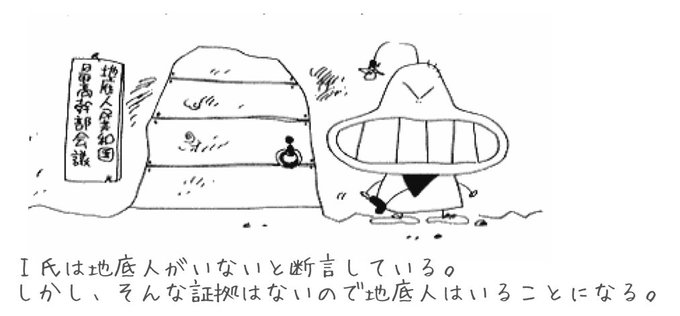 地底人共和国
最高幹部会議
I氏は地底人がいないと断言している。
しかし、そんな証拠はないので地底人はいることになる。